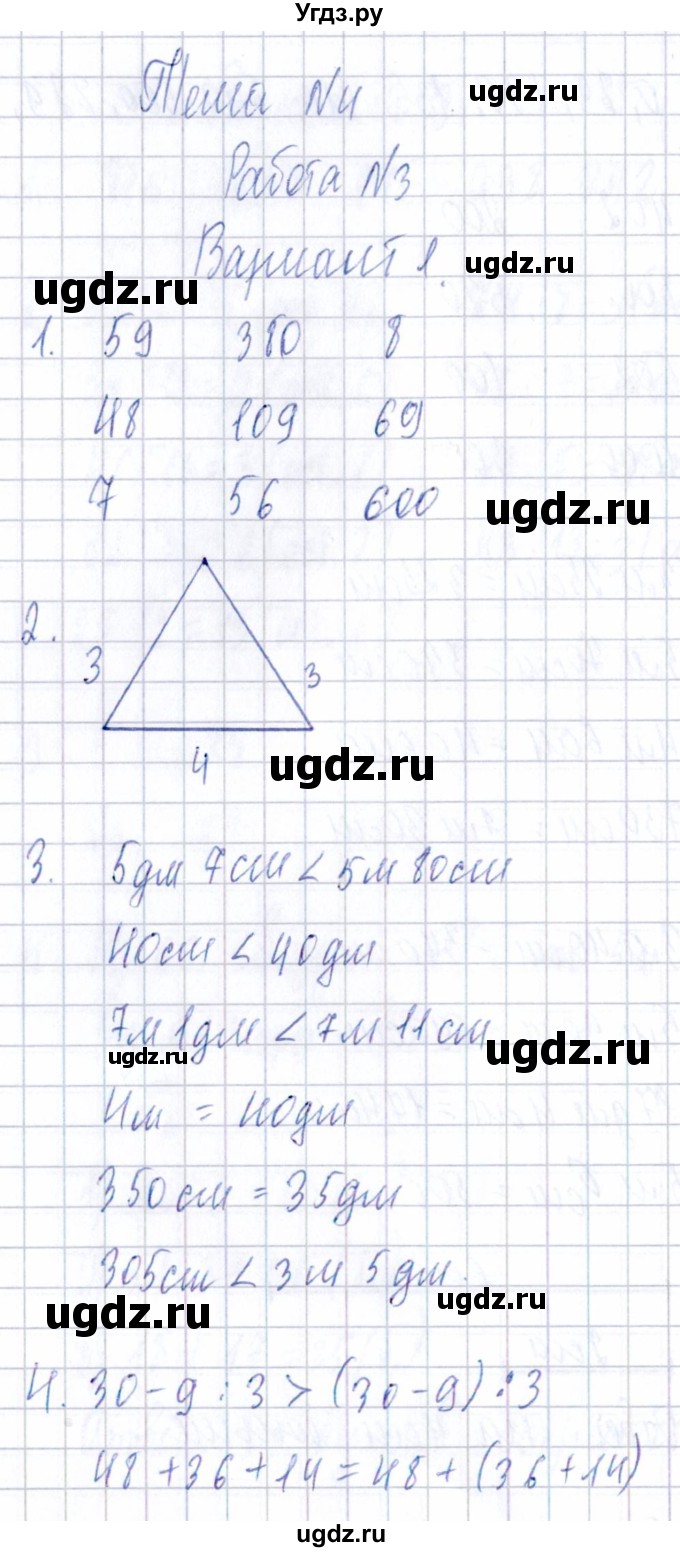 Угдз.ру
Тема №4
ugdz.ru
Работа №3
Вариант 1.
ugdz.ru
ugdz.ru
1. 59 380 8
48 109 69
7 56 600
ugdz.ru
2.
3 3
4
ugdz.ru
3. 5дм 7см < 5м 80см
40см < 40дм
7м 1дм < 7м 11см
ugdz.ru
ugdz.ru
4м = 40дм
350см = 35дм
305см < 3м 5дм.
ugdz.ru
ugdz.ru
4. 30-9:3 > (30-9):3
48+36+14=48+(36+14)
ugdz.ru